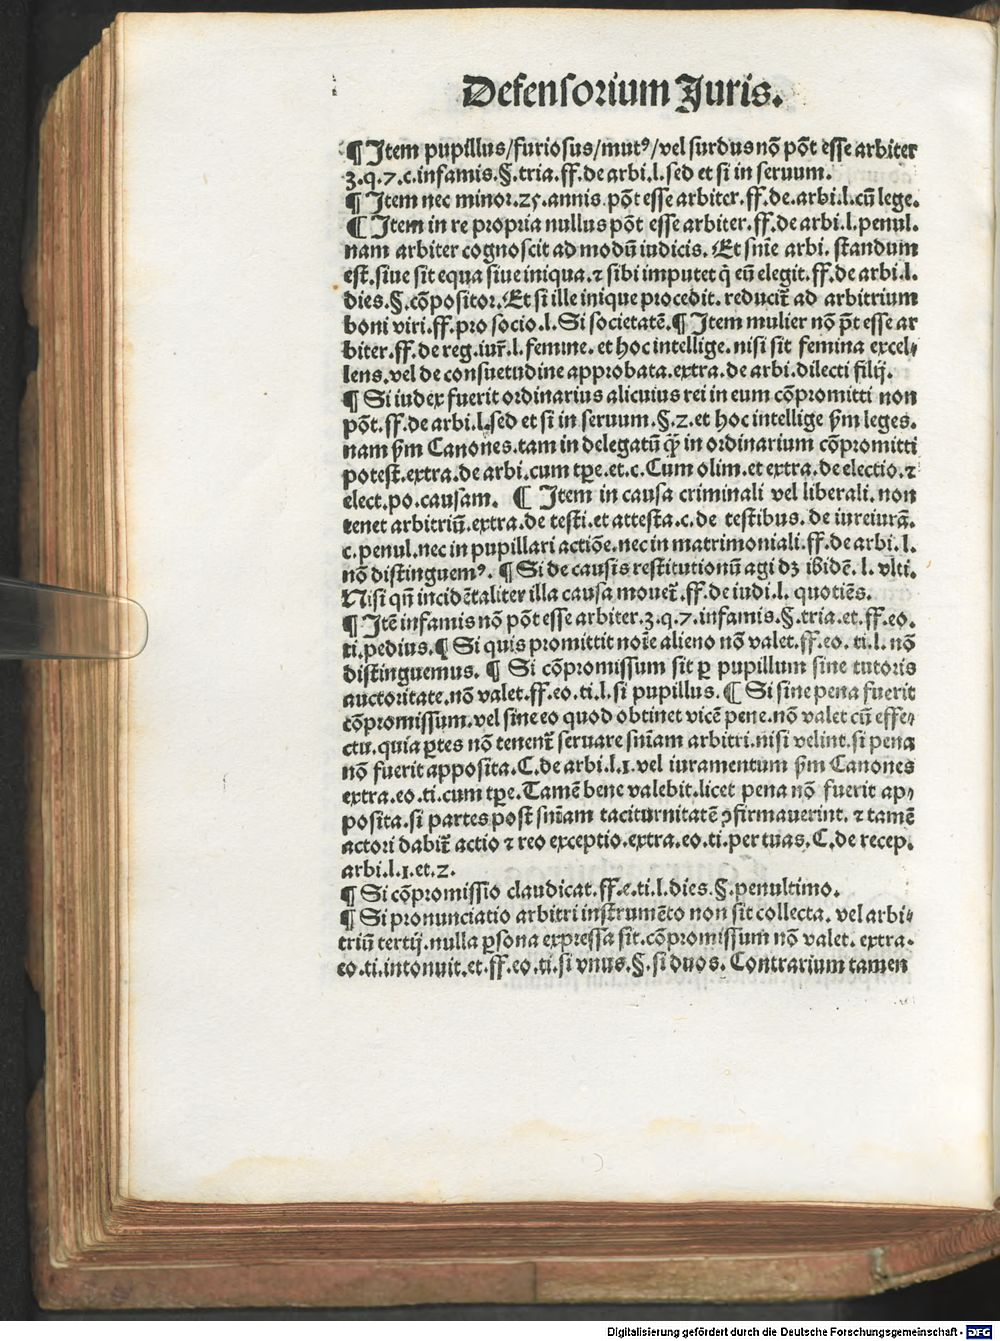 Defensorium Juris.
¶ Item pupillus/furiosus/mutꝰ/vel surdus nō pōt esse arbiter
3.q.7.c.infamis.§.tria.ff.de arbi.l.sed et si in seruum.
¶ Item nec minor.25.annis.pōt esse arbiter.ff.de.arbi.l.cū lege.
¶ Item in re propria nullus pōt esse arbiter.ff.de arbi.l.penul.
nam arbiter cognoscit ad modū iudicis. Et snīe arbi. standum
est.siue sit equa siue iniqua.⁊ sibi imputet q̄ eū elegit.ff.de arbi.l.
dies.§.cōpositor.Et si ille inique procedit.reducit̄ ad arbitrium
boni viri.ff.pro socio.l.Si societatē.¶ Item mulier nō p̄t esse ar
biter.ff.de reg.iur̄.l.femine.et hoc intellige.nisi sit femina excel⸗
lens.vel de consuetudine approbata.extra.de arbi.dilecti filij.
¶ Si iudex fuerit ordinarius alicuius rei in eum cōpromitti non
pōt.ff.de arbi.l.sed et si in seruum.§.2.et hoc intellige ẜm leges.
nam ẜm Canones.tam in delegatū q̄ꝫ in ordinarium cōpromitti
potest.extra.de arbi.cum tꝑe.et.c.Cum olim.et extra.de electio.⁊
elect.po.causam. ¶ Item in causa criminali vel liberali.non
tenet arbitriū.extra.de testi.et attesta.c.de testibus.de iureiurā.
c.penul.nec in pupillari actiōe.nec in matrimoniali.ff.de arbi.l.
nō distinguemꝰ. ¶ Si de causis restitutionū agi dꝫ ibidē.l.vlti.
Nisi qn̄ incidētaliter illa causa mouet̄.ff.de iudi.l.quotiēs.
¶ Itē infamis nō pōt esse arbiter.3.q.7.infamis.§.tria.et.ff.eo.
ti.pedius.¶ Si quis promittit noīe alieno nō valet.ff.eo.ti.l.nō
distinguemus. ¶ Si cōpromissum sit ꝑ pupillum sine tutoris
auctoritate.nō valet.ff.eo.ti.l.si pupillus.¶ Si sine pena fuerit
cōpromissum.vel sine eo quod obtinet vicē pene.nō valet cū effe⸗
ctu.quia ꝑtes nō tenent̄ seruare sniam arbitri.nisi velint.si pena
nō fuerit apposita.C.de arbi.l.1.vel iuramentum ẜm Canones
extra.eo.ti.cum tꝑe.Tamē bene valebit.licet pena nō fuerit ap⸗
posita.si partes post sniam taciturnitatē ꝯfirmauerint. ⁊ tamē
actori dabit̄ actio ⁊ reo exceptio.extra.eo.ti.per tuas.C.de recep.
arbi.l.1.et.2.
¶ Si cōpromissio claudicat.ff.e.ti.l.dies.§.penultimo.
¶ Si pronunciatio arbitri instrumēto non sit collecta. vel arbi⸗
triū tertij.nulla ꝑsona expressa sit.cōpromissum nō valet. extra.
eo.ti.intonuit.et.ff.eo.ti.si vnus.§.si duos. Contrarium tamen
Digitalisierung gefördert durch die Deutsche Forschungsgemeinschaft - DFG